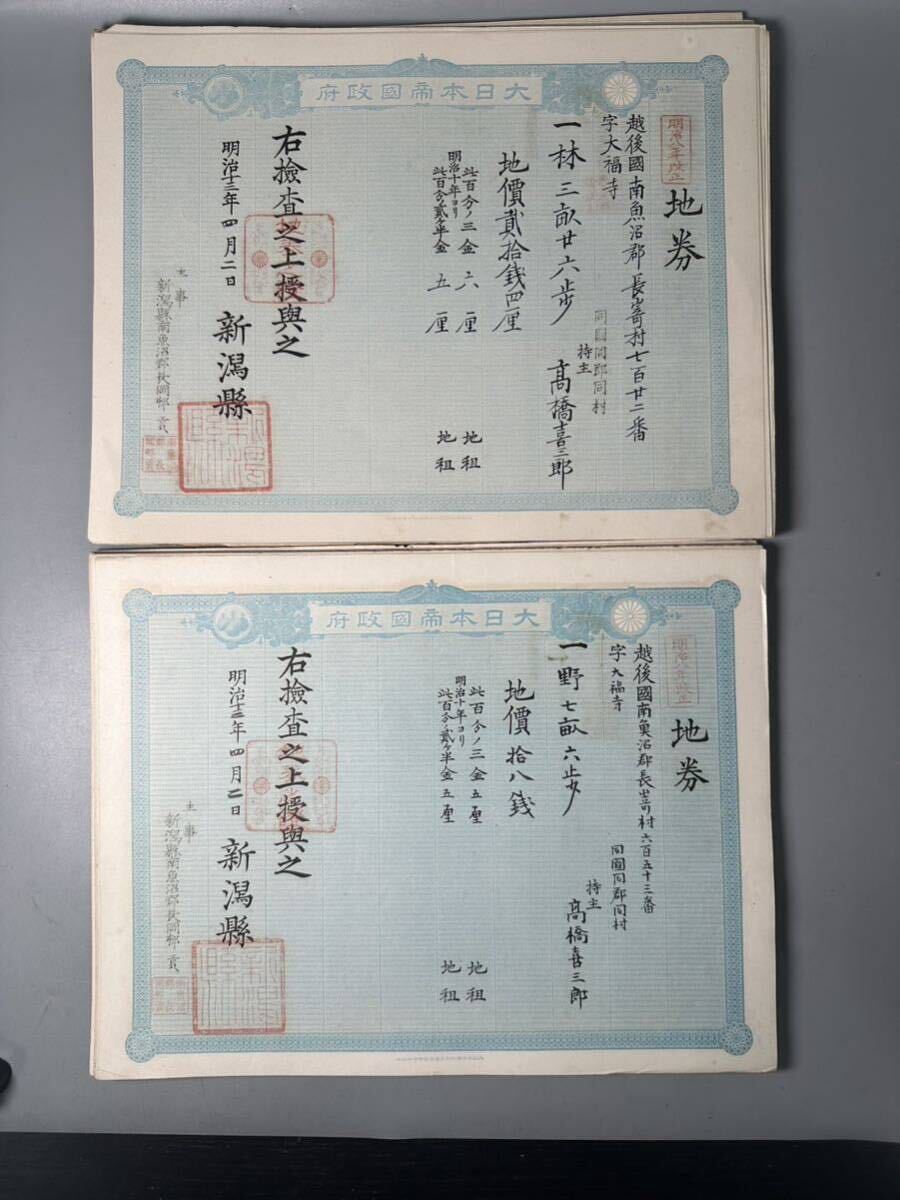 大日本帝國政府
明治八年改正
地券
越後國南魚沼郡長寄村七百廿二番
字大福寺
同國同郡同村
一林三畝廿六步
持主
髙橋喜三郎
地價貳拾銭四厘
此百分ノ三金六厘 地租
明治十年ヨリ
此百分ノ貳ヶ半金五厘 地租
右撿査之上授與之
明治十三年四月二日
新潟縣
主事
大日本帝國政府
明治八年改正
地券
越後國南魚沼郡長寄村六百五十三番
字大福寺
同國同郡同村
一野七畝六步
持主
髙橋喜三郎
地價拾八銭
此百分ノ三金五厘 地租
明治十年ヨリ
此百分ノ貳ヶ半金五厘 地租
右撿査之上授與之
明治十三年四月二日
新潟縣
主事